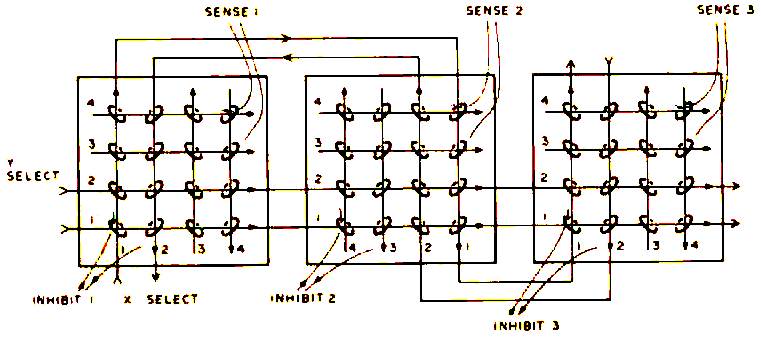 SENSE 1
SENSE 2
SENSE 3
4
4
4
3
3
3
Y
SELECT
2
2
2
1
1
1
1
2
3
4
4
3
2
1
1
2
3
4
INHIBIT 1
X SELECT
INHIBIT 2
INHIBIT 3